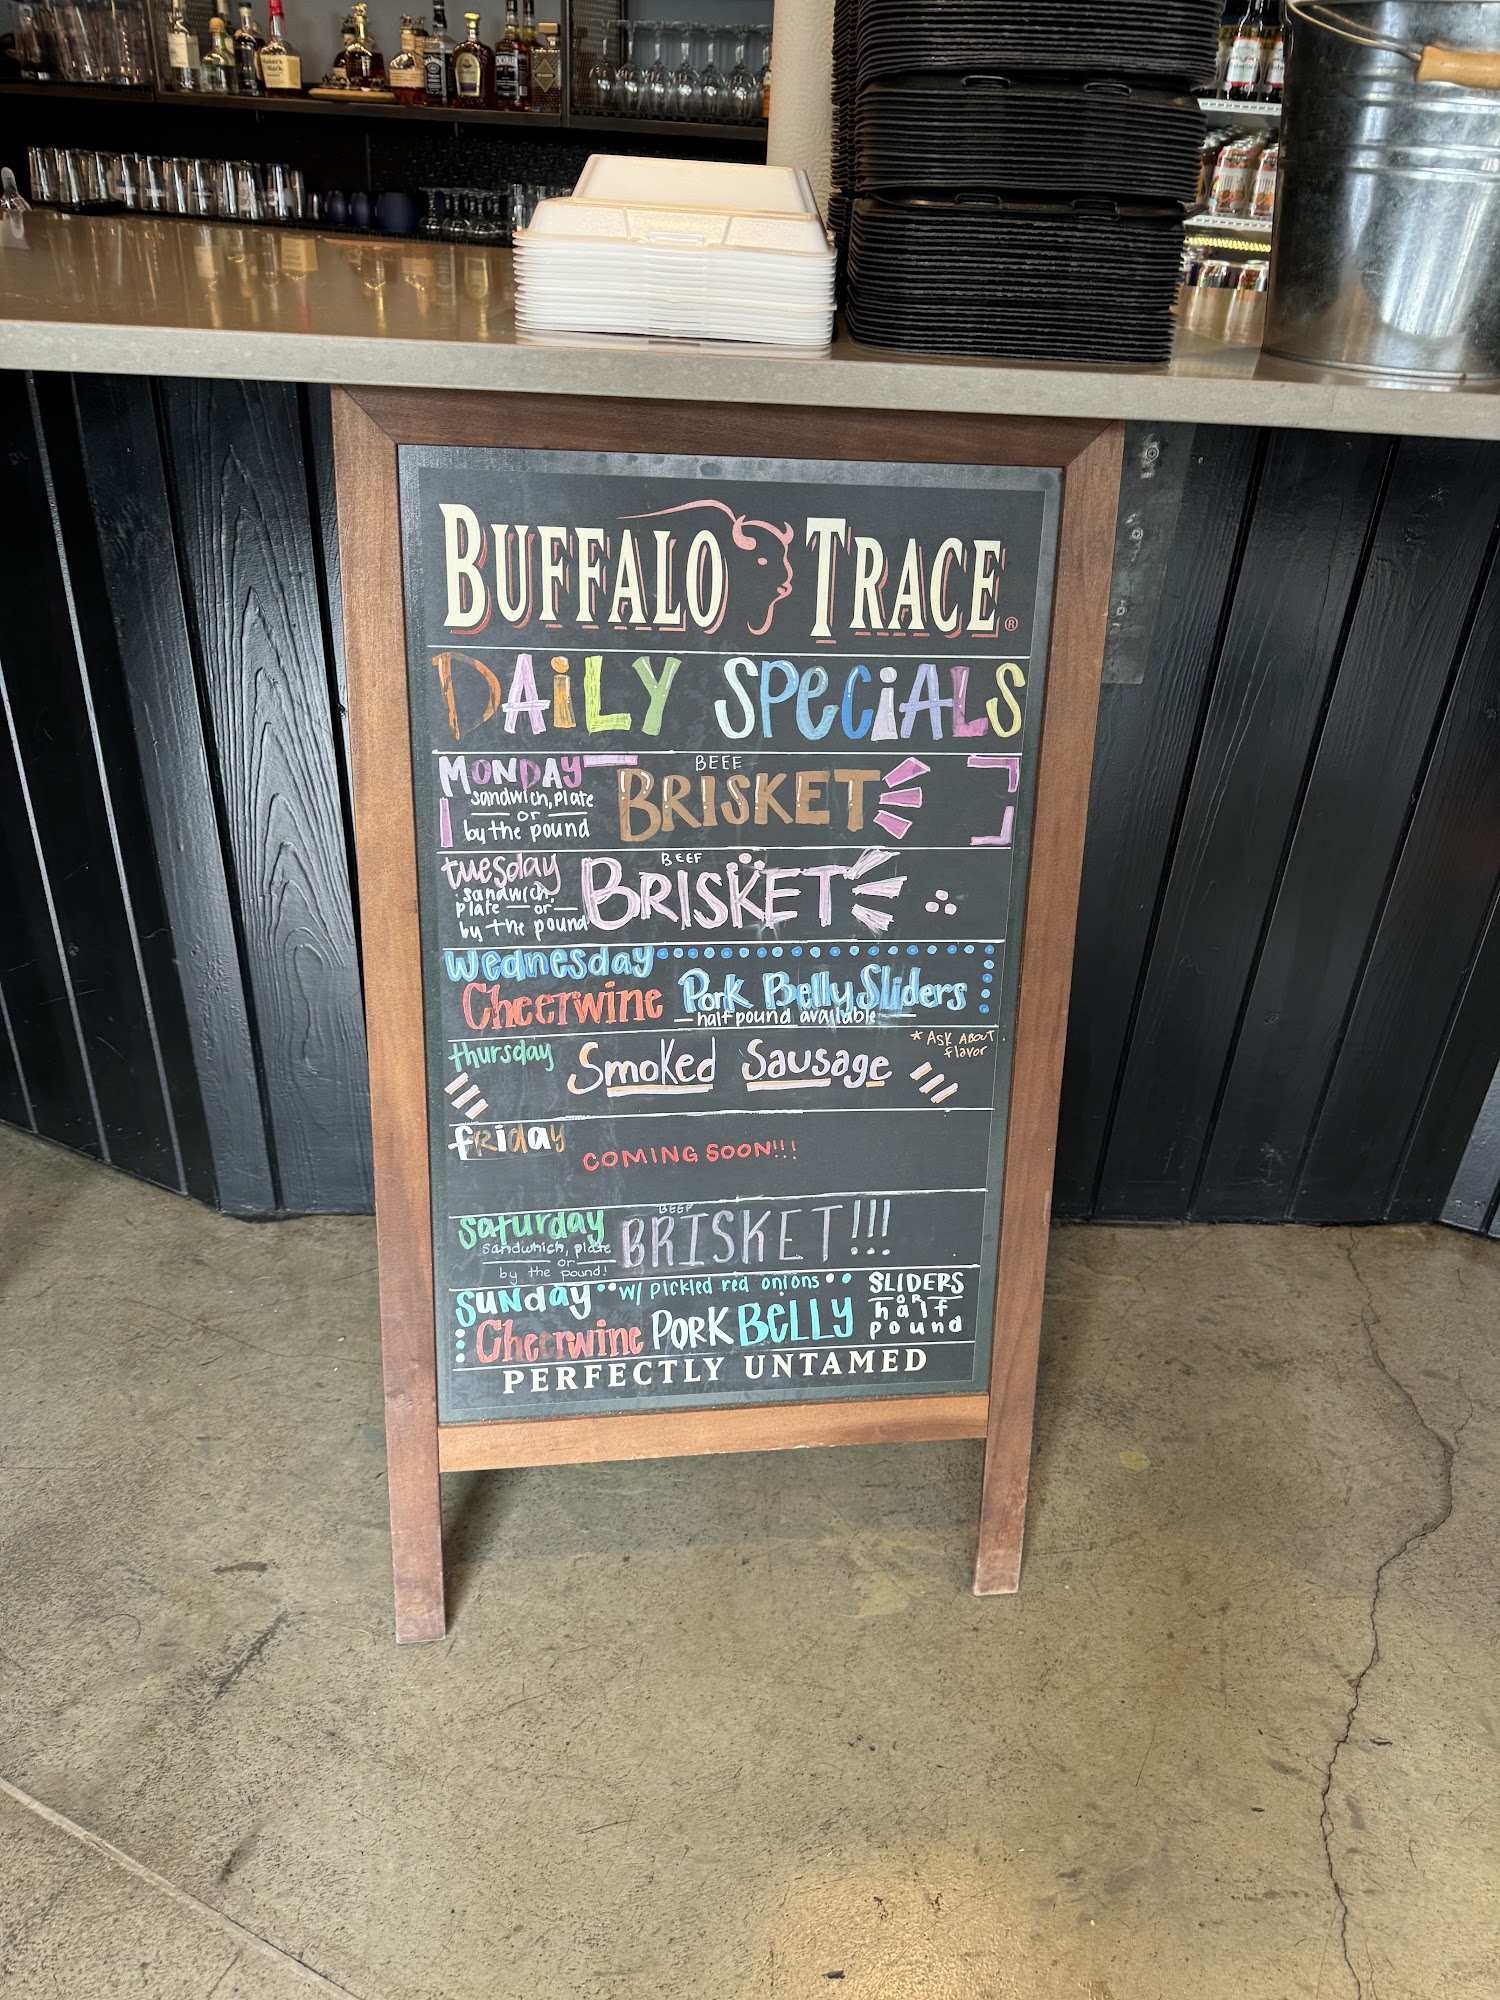 Maker's Mark
BUFFALO TRACE®
DAiLY SPECiALS
MONDAY
sandwich, plate
or
by the pound
BEEF
BRISKET
tuesday
sandwich,
plate — or —
by the pound
BEEF
BRISKET
Wednesday
Cheerwine Pork Belly Sliders
— half pound available —
thursday
Smoked Sausage
* ASK ABOUT
flavor
fRiday
COMING SOON!!!
Saturday
sandwhich, plate
or
by the pound!
BEEF
BRISKET!!!
SUNday
W/ pickled red onions
Cheerwine PORK BELLY
SLIDERS
OR
half
pound
PERFECTLY UNTAMED